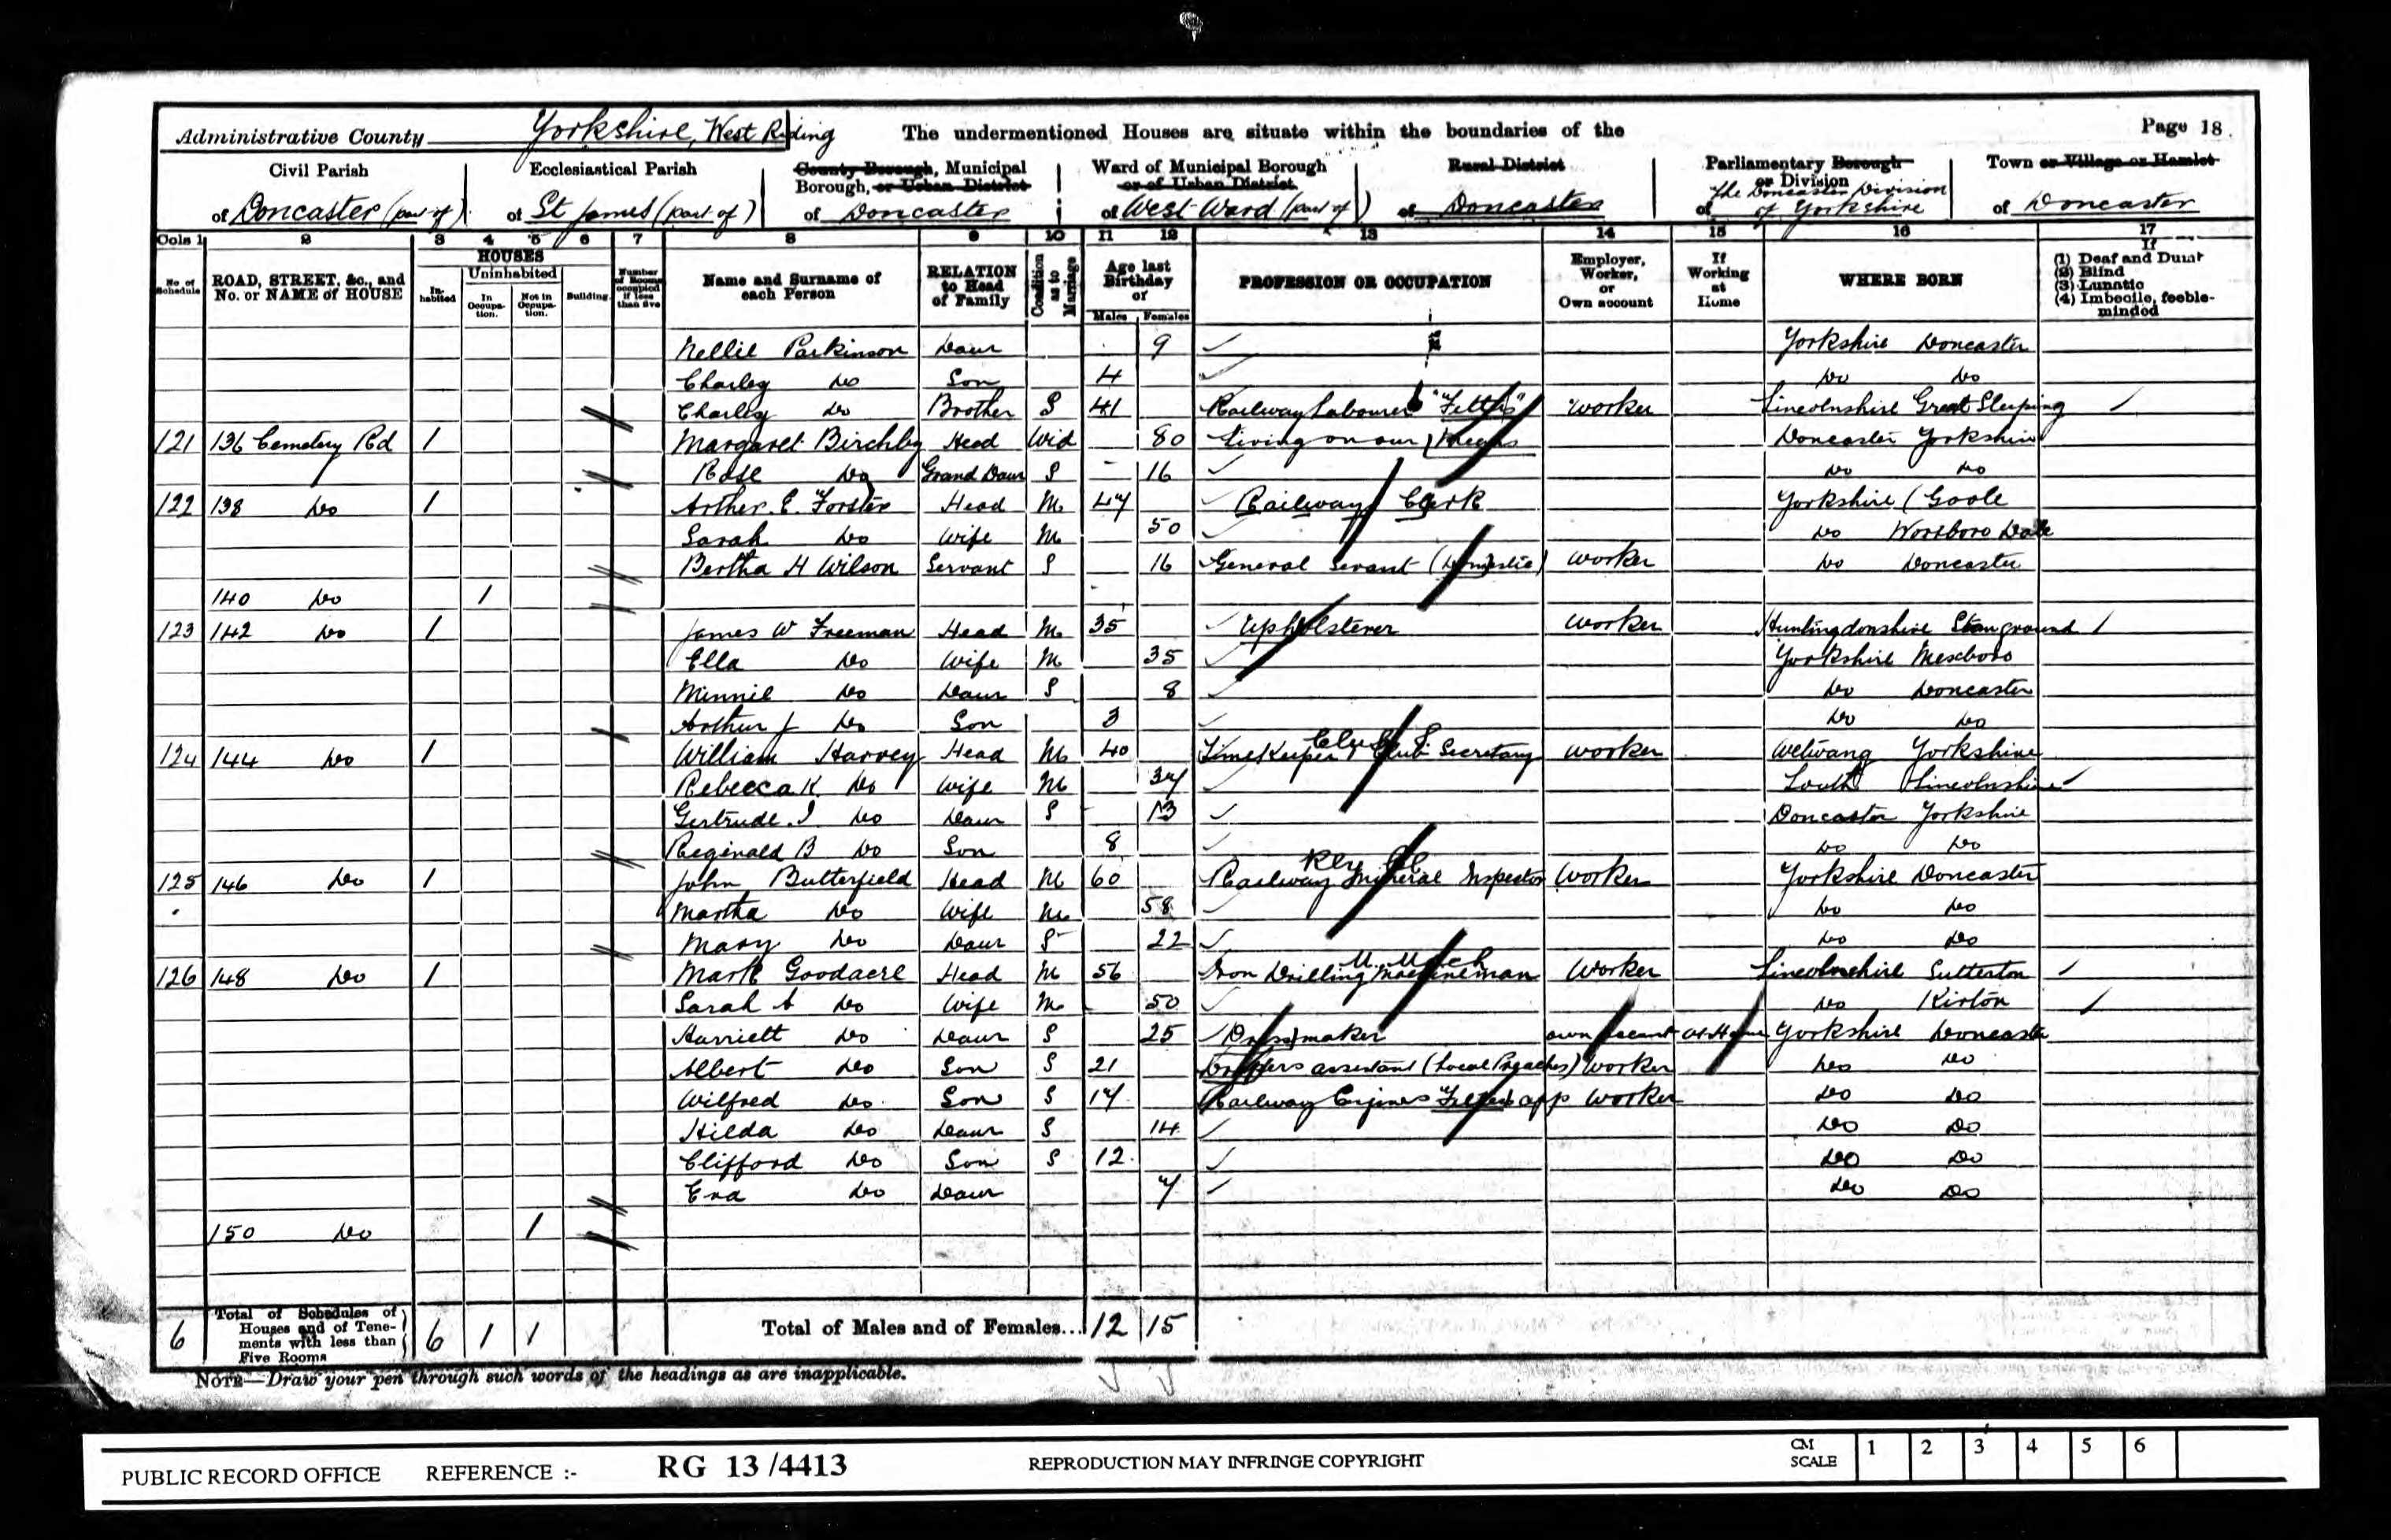 Administrative County Yorkshire, West Riding The undermentioned Houses are situate within the boundaries of the Page 18.
Civil Parish Ecclesiastical Parish County Borough, Municipal Borough, or Urban District Ward of Municipal Borough or of Urban District Rural District Parliamentary Borough or Division Town or Village or Hamlet
of Doncaster (part of) of St James (part of) of Doncaster of West Ward (part of) of Doncaster of The Doncaster Division of Yorkshire of Doncaster
Cols 1 2 3 4 5 6 7 8 9 10 11 12 13 14 15 16 17
No of Schedule ROAD, STREET, &c., and No. or NAME of HOUSE HOUSES Inhabited Uninhabited In Occupation. Not in Occupation. Building. Number of Rooms occupied if less than five Name and Surname of each Person RELATION to Head of Family Condition as to Marriage Age last Birthday of Males Females PROFESSION OR OCCUPATION Employer, Worker, or Own account If Working at Home WHERE BORN If (1) Deaf and Dumb (2) Blind (3) Lunatic (4) Imbecile, feeble-minded
Nellie Parkinson Daur 9 Yorkshire Doncaster
Charley Do Son 4 Do Do
Charley Do Brother S 41 Railway Labourer "Fitters" Worker Lincolnshire Great Sleeping
121 136 Cemetery Rd 1 Margaret Birchby Head Wid 80 Living on our Means Doncaster Yorkshire
Rose Do Grand Daur S 16 Do Do
122 138 Do 1 Arther. E. Forster Head M 47 Railway Clerk Yorkshire (Goole
Sarah Do Wife M 50 Do Worsboro Dale
Bertha H Wilson Servant S 16 General Servant (Domestic) Worker Do Doncaster
140 Do 1
123 142 Do 1 James W Freeman Head M 35 Upholsterer Worker Huntingdonshire Stanground
Ella Do Wife M 35 Yorkshire Mexboro
Minnie Do Daur S 8 Do Doncaster
Arthur J Do Son 3 Do Do
124 144 Do 1 William Harvey Head M 40 Time Keeper Club Secretary Worker Wetwang Yorkshire
Rebecca K. Do Wife M 37 Louth Lincolnshire
Gertrude. I. Do Daur S 13 Doncaster Yorkshire
Reginald B Do Son 8 Do Do
125 146 Do 1 John Butterfield Head M 60 Railway Mineral Inspector Worker Yorkshire Doncaster
Martha Do Wife M 58 Do Do
Mary Do Daur S 22 Do Do
126 148 Do 1 Mark Goodacre Head M 56 Iron Drilling Machineman Worker Lincolnshire Sutterton
Sarah A Do Wife M 50 Do Kirton
Harriett Do Daur S 25 Dressmaker own accont At Home Yorkshire Doncaster
Albert Do Son S 21 Drapers assistant (Local Preacher) Worker Do Do
Wilfred Do Son S 17 Railway Engines Fitter app Worker Do Do
Hilda Do Daur S 14 Do Do
Clifford Do Son S 12 Do Do
Eva Do Daur 7 Do Do
150 Do 1
6 Total of Schedules of Houses and of Tenements with less than Five Rooms 6 1 1 Total of Males and of Females... 12 15
NOTE—Draw your pen through such words of the headings as are inapplicable.
PUBLIC RECORD OFFICE REFERENCE :- RG 13/4413 REPRODUCTION MAY INFRINGE COPYRIGHT CM SCALE 1 2 3 4 5 6